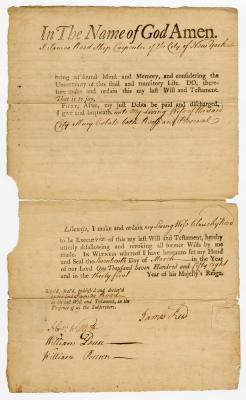 In The Name of God Amen.
I James Reed Ship Carpenter of the City of New York
being of sound Mind and Memory, and considering the
Uncertainty of this frail and transitory Life, DO, there-
fore make and ordain this my last Will and Testament.
That is to say,
FIRST, After, my just Debts be paid and discharged,
I give and bequeath unto My Loving Wife
City My Estate both Real and Personal
Likewise, I make and ordain my Loving Wife
to be Executrix of this my last Will and Testament, hereby
utterly disallowing and revoking all former Wills by me
made. In WITNESS whereof I have hereunto set my Hand
and Seal the Day of March in the Year
of our Lord One Thousand Seven Hundred and Fifty Eight
and in the thirty first Year of his Majesty's Reign.
Sign'd, Seal'd, publish'd and declar'd
by the said James Reed
as his last Will and Testament, in the
Presence of us the Subscribers.
James Reed
William
William Brown